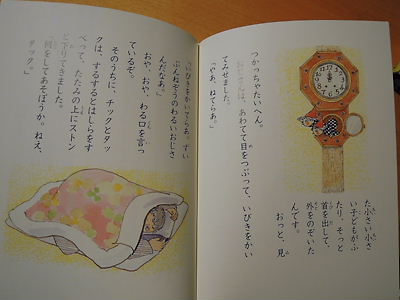 た小さい小さ
い子どもがふ
たり、そっと
首を出して、
外をのぞいた
んです。
おっと、見
つかっちゃたいへん。
おじいさんは、あわてて目をつぶって、いびきをかい
てみせました。
「やあ、ねてらあ。」
「いびきをかいてらあ。ずい
ぶんねぞうのわるいおじさ
んだなあ。」
おや、おや、わる口を言っ
ているぞ。
そのうちに、チックとタッ
クは、するするとはしらをす
べって、たたみの上にストン
と下りてきました。
「何をしてあそぼうか。ねえ、
タック。」